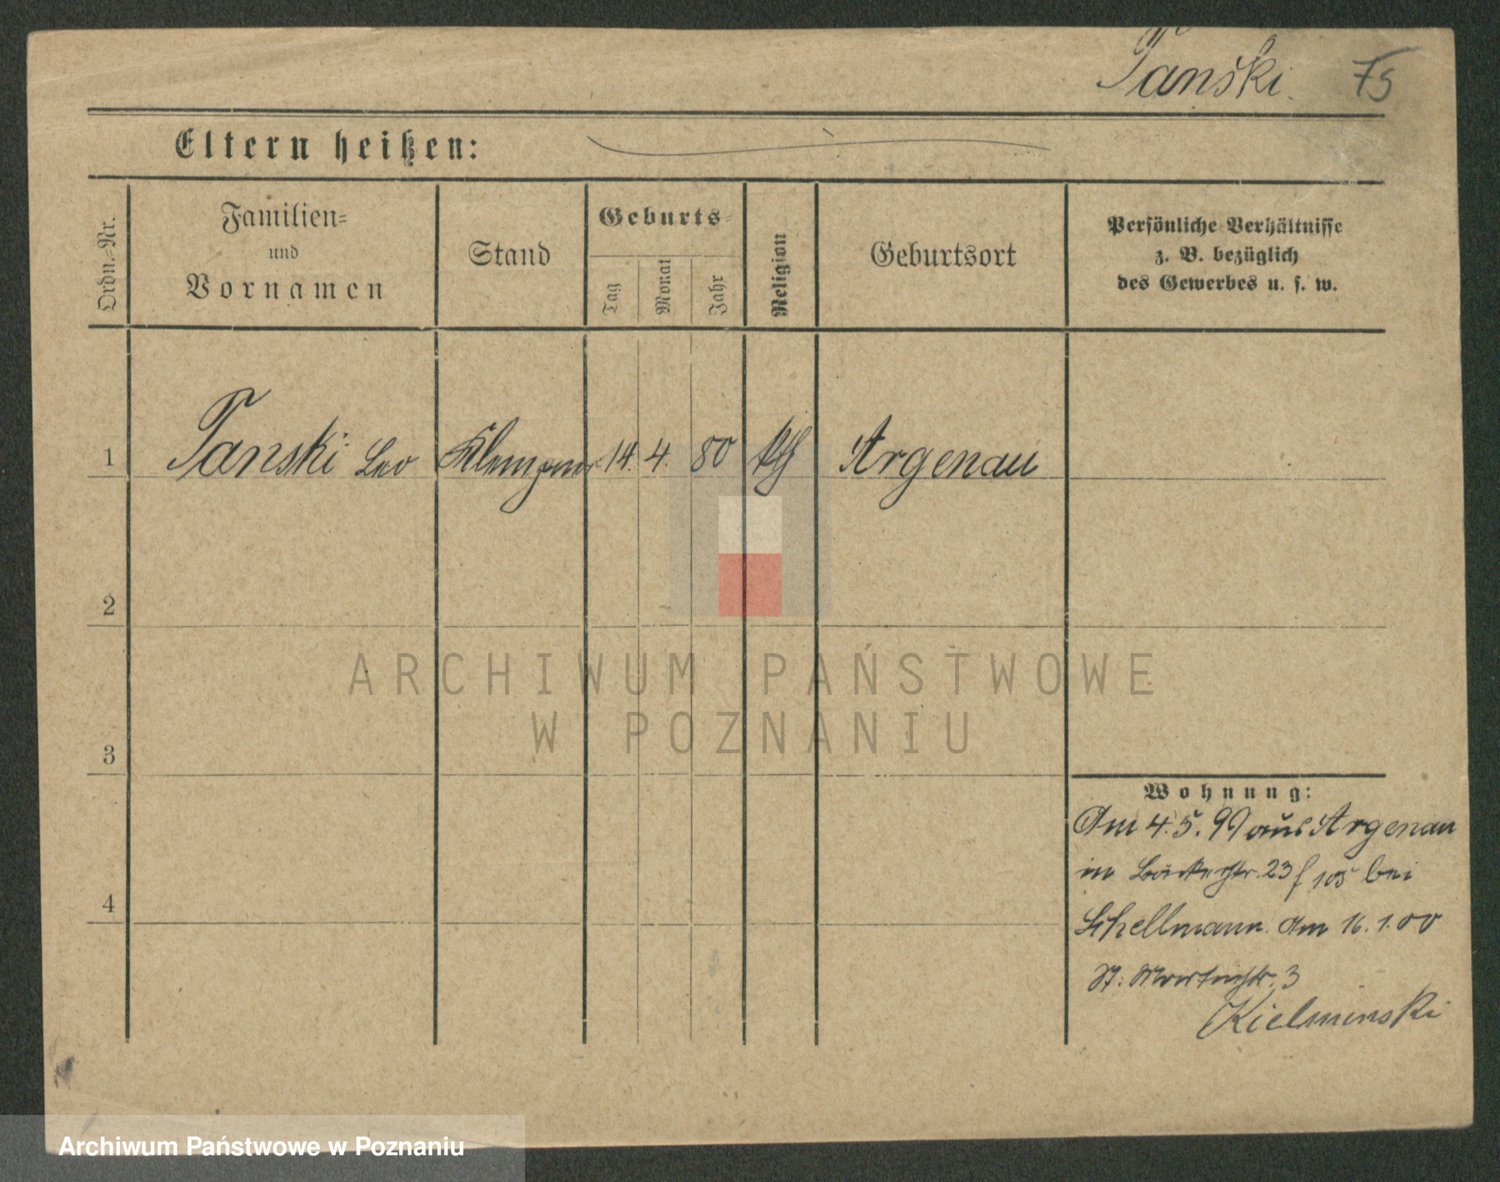 Tanski. 75
Eltern heißen:
Ordn.-Nr.
Familien-
und
Vornamen
Stand
Geburts-
Tag
Monat
Jahr
Religion
Geburtsort
Persönliche Verhältnisse
z. B. bezüglich
des Gewerbes u. s. w.
1 Tanski Leo Klempner 14. 4. 80 kth Argenau
2
3
4
ARCHIWUM PAŃSTWOWE
W POZNANIU
Wohnung:
Am 4. 5. 99 aus Argenau
in Bäckerstr. 23 f 105 bei
Schellmann. Am 16. 1. 00
St. Martinstr. 3
Kielminski
Archiwum Państwowe w Poznaniu